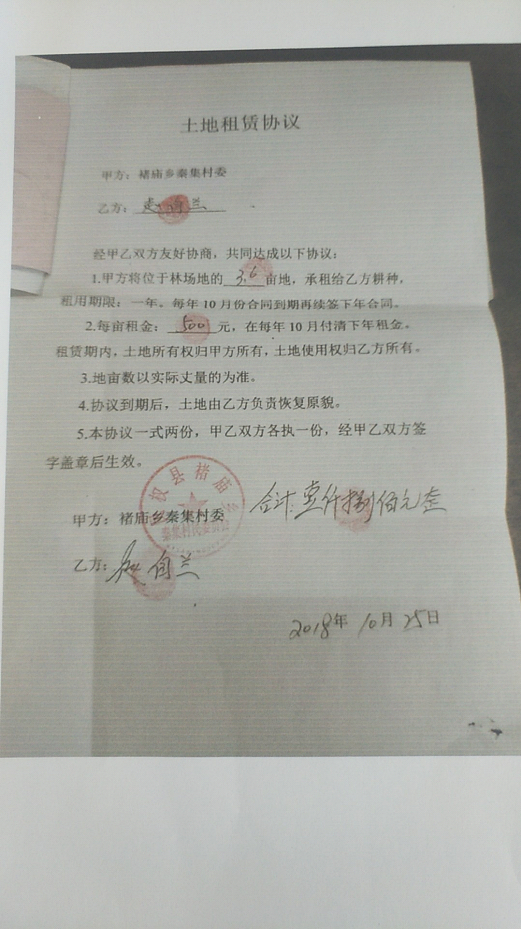 土地租赁协议
甲方：褚庙乡秦集村委
乙方：赵自兰
经甲乙双方友好协商，共同达成以下协议：
1.甲方将位于林场地的 3.6 亩地，承租给乙方耕种，
租用期限：一年。每年10月份合同到期再续签下年合同。
2.每亩租金：500元，在每年10月付清下年租金。
租赁期内，土地所有权归甲方所有，土地使用权归乙方所有。
3.地亩数以实际丈量的为准。
4.协议到期后，土地由乙方负责恢复原貌。
5.本协议一式两份，甲乙双方各执一份，经甲乙双方签
字盖章后生效。
权县褚庙
秦集村民委员会
合计：壹仟捌佰元整
甲方：褚庙乡秦集村委
乙方：赵自兰
2018年10月25日